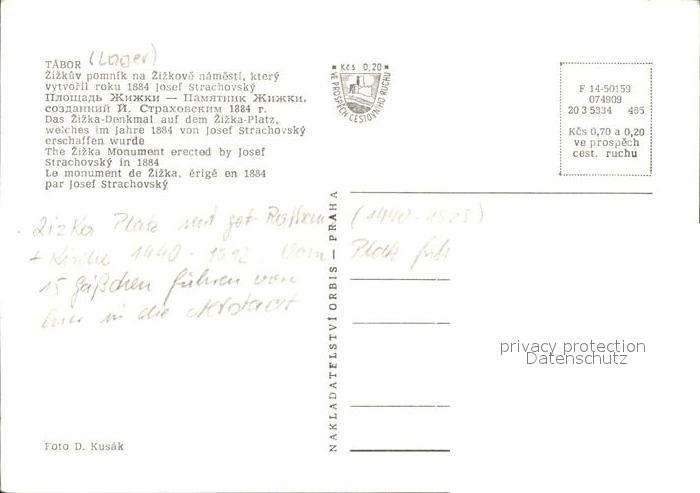 TÁBOR (Lager)
Žižkův pomník na Žižkově náměstí, který
vytvořil roku 1884 Josef Strachovský
Площадь Жижки — Памятник Жижки,
созданний Й. Страховским 1884 г.
Das Žižka-Denkmal auf dem Žižka-Platz,
welches im Jahre 1884 von Josef Strachovský
erschaffen wurde
The Žižka Monument erected by Josef
Strachovský in 1884
Le monument de Žižka, érigé en 1884
par Josef Strachovský
Kčs 0,20
VE PROSPĚCH CESTOVNÍHO RUCHU
F 14-50159
074909
20 3 5334 465
Kčs 0,70 a 0,20
ve prospěch
cest. ruchu
Zizka Platz mit got Rathaus (1440-1525)
+ Kirche 1440-1512. Vom Platz
15 Gäßchen führen von
hier in die Altstadt
NAKLADATELSTVÍ ORBIS - PRAHA
privacy protection
Datenschutz
Foto D. Kusák